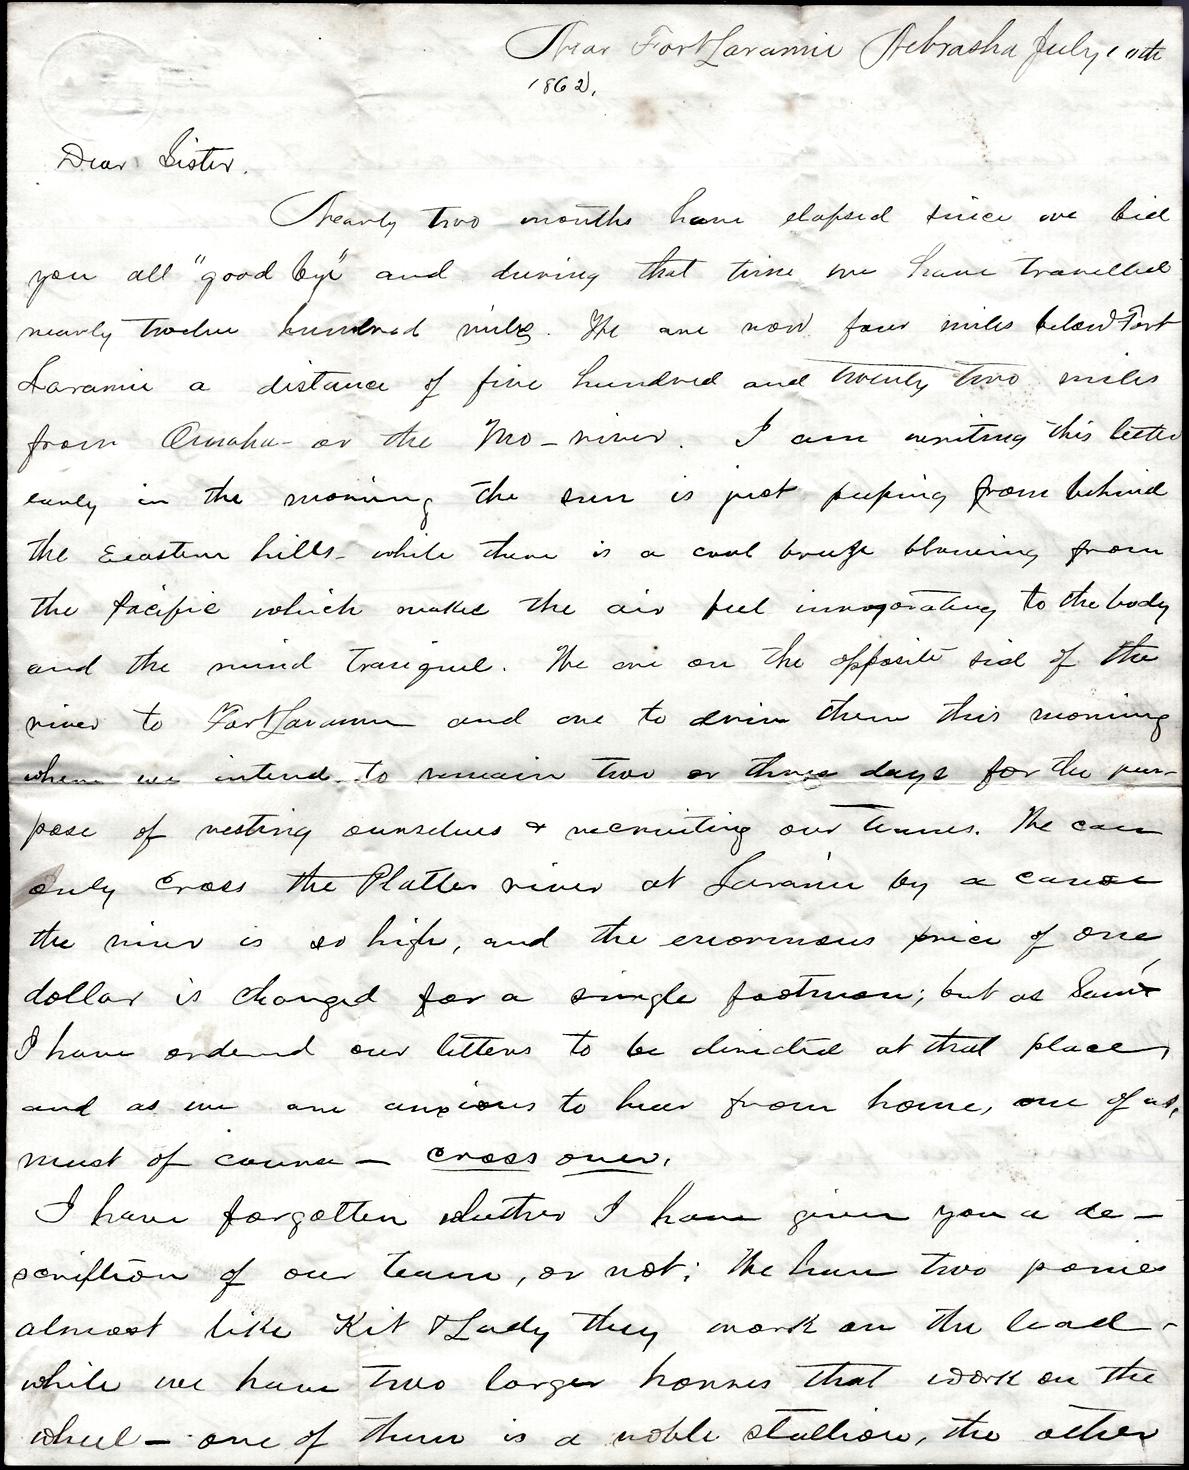 Near Fort Laramie Nebraska July
1862.
Dear Sister.
Nearly two months have elapsed since we bid
you all "good bye" and during that time we have travelled
nearly twelve hundred miles. We are now four miles below Fort
Laramie a distance of five hundred and twenty two miles
from Omaha - or the Mo - river. I am writing this letter
early in the morning the sun is just peeping from behind
the Eeastern hills - while there is a cool breeze blowing from
the Pacific which makes the air feel invigorating to the body
and the mind tranquil. We are on the opposite sid of the
river to Fort Laramie and are to drive there this morning
where we intend to remain two or three days for the pur-
pose of resting ourselves & recruiting our teams. We can
only cross the Platte river at Laramie by a canoe
the river is so high, and the enormous price of one
dollar is charged for a single footman; but as Sam &
I have ordered our letters to be directed at that place,
and as we are anxious to hear from home, one of us,
must of course - cross over.
I have forgotten whether I have given you a de-
scription of our team, or not; We have two ponies
almost like Kit & Lady they work on the lead -
while we have two larger horses that work on the
wheel - one of them is a noble stallion, the other